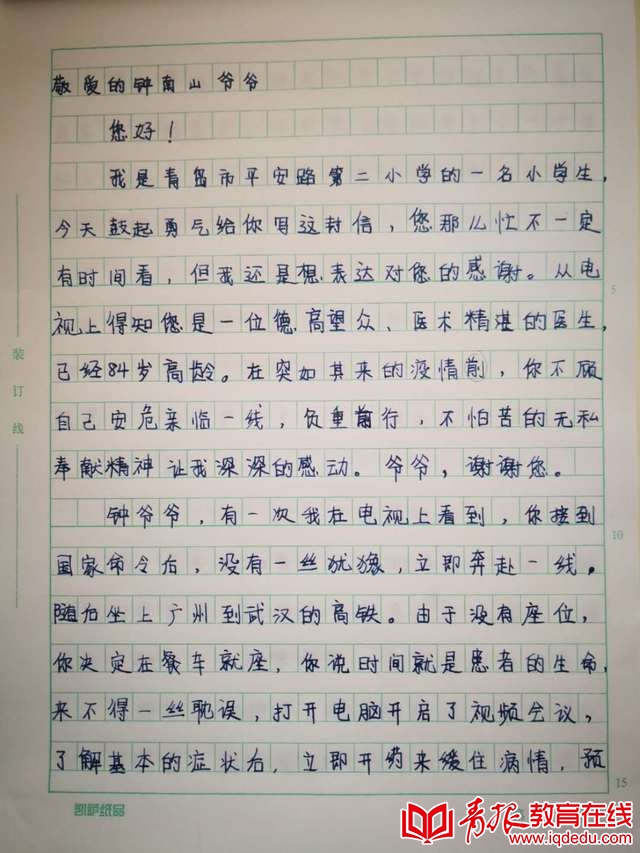 敬爱的钟南山爷爷
您好！
我是青岛市平安路第二小学的一名小学生，
今天鼓起勇气给你写这封信，您那么忙不一定
有时间看，但我还是想表达对您的感谢。从电
视上得知您是一位德高望众、医术精湛的医生，
已经84岁高龄。在突如其来的疫情前，你不顾
自己安危亲临一线，负重前行，不怕苦的无私
奉献精神让我深深的感动。爷爷，谢谢您。
钟爷爷，有一次我在电视上看到，你接到
国家命令后，没有一丝犹豫，立即奔赴一线。
随后坐上广州到武汉的高铁。由于没有座位，
你决定在餐车就座，你说时间就是患者的生命，
来不得一丝耽误，打开电脑开启了视频会议，
了解基本的症状后，立即开药来缓住病情，预
装订线
5
10
15
凯萨纸品
青报教育在线
www.iqdedu.com